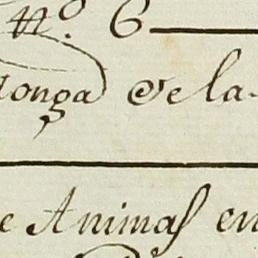 n.º 6
longa de la
e Animas en